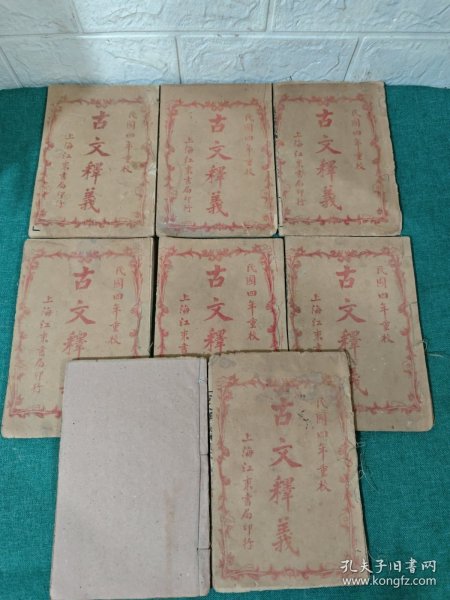 民國四年重校
古文釋義
上海江東書局印行
民國四年重校
古文釋義
上海江東書局印行
民國四年重校
古文釋義
上海江東書局印行
民國四年重校
古文釋
上海江東書局印行
民國四年重校
古文釋
上海江東書
民國四年重校
古文釋
上海江東書
民國四年重校
古文釋義
上海江東書局印行
孔夫子旧书网
www.kongfz.com